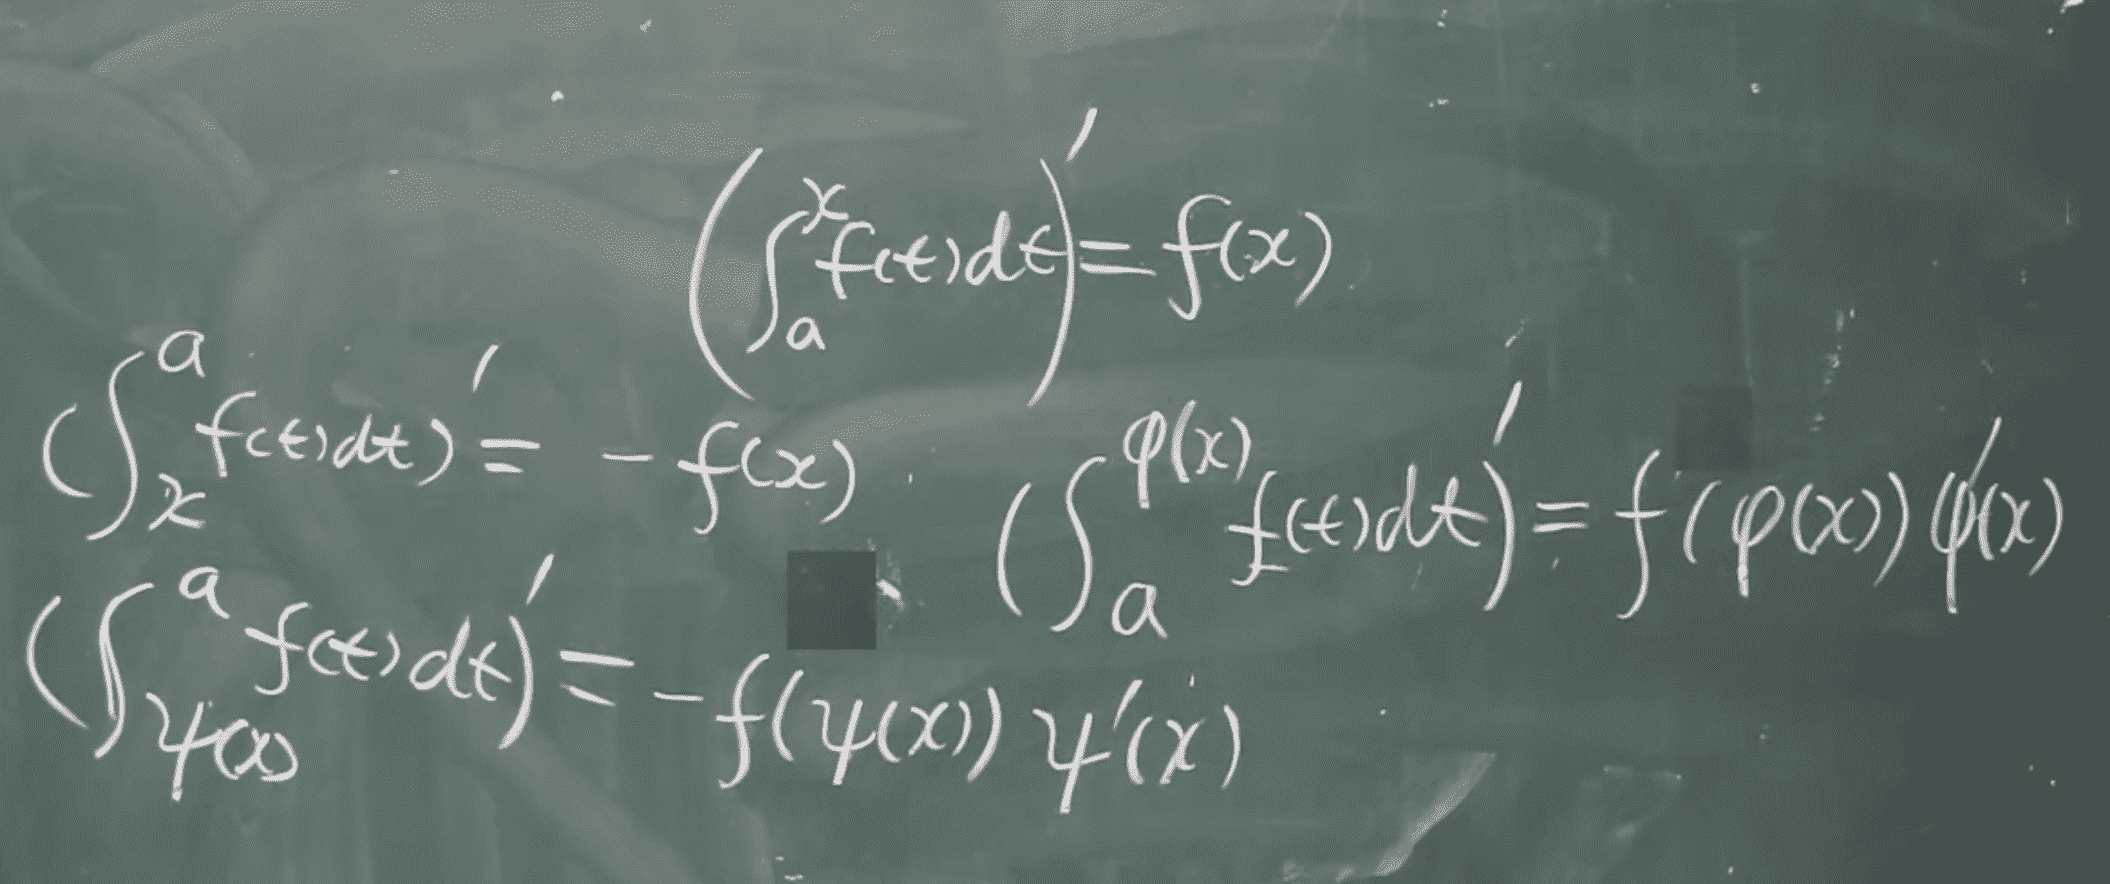 (∫ₐˣ f(t)dt)′ = f(x)
(∫ₓᵃ f(t)dt)′ = -f(x)
(∫ₐ^φ(x) f(t)dt)′ = f(φ(x))φ′(x)
(∫_ψ(x)^a f(t)dt)′ = -f(ψ(x))ψ′(x)